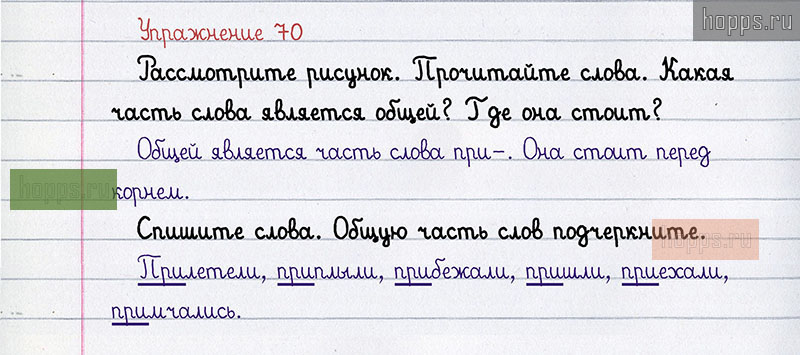 hopps.ru
Упражнение 70
Рассмотрите рисунок. Прочитайте слова. Какая
часть слова является общей? Где она стоит?
Общей является часть слова при-. Она стоит перед
hopps.ru
корнем.
Спишите слова. Общую часть слов подчеркните.
hopps.ru
Прилетели, приплыли, прибежали, пришли, приехали,
примчались.